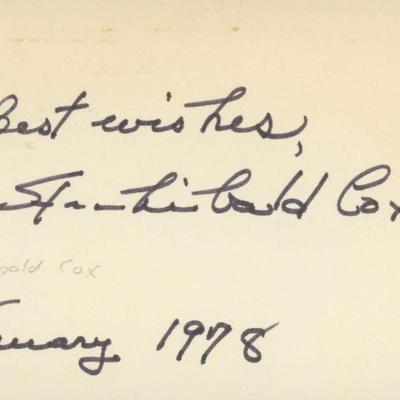 Best wishes,
Archibald Cox
bald Cox
nuary 1978